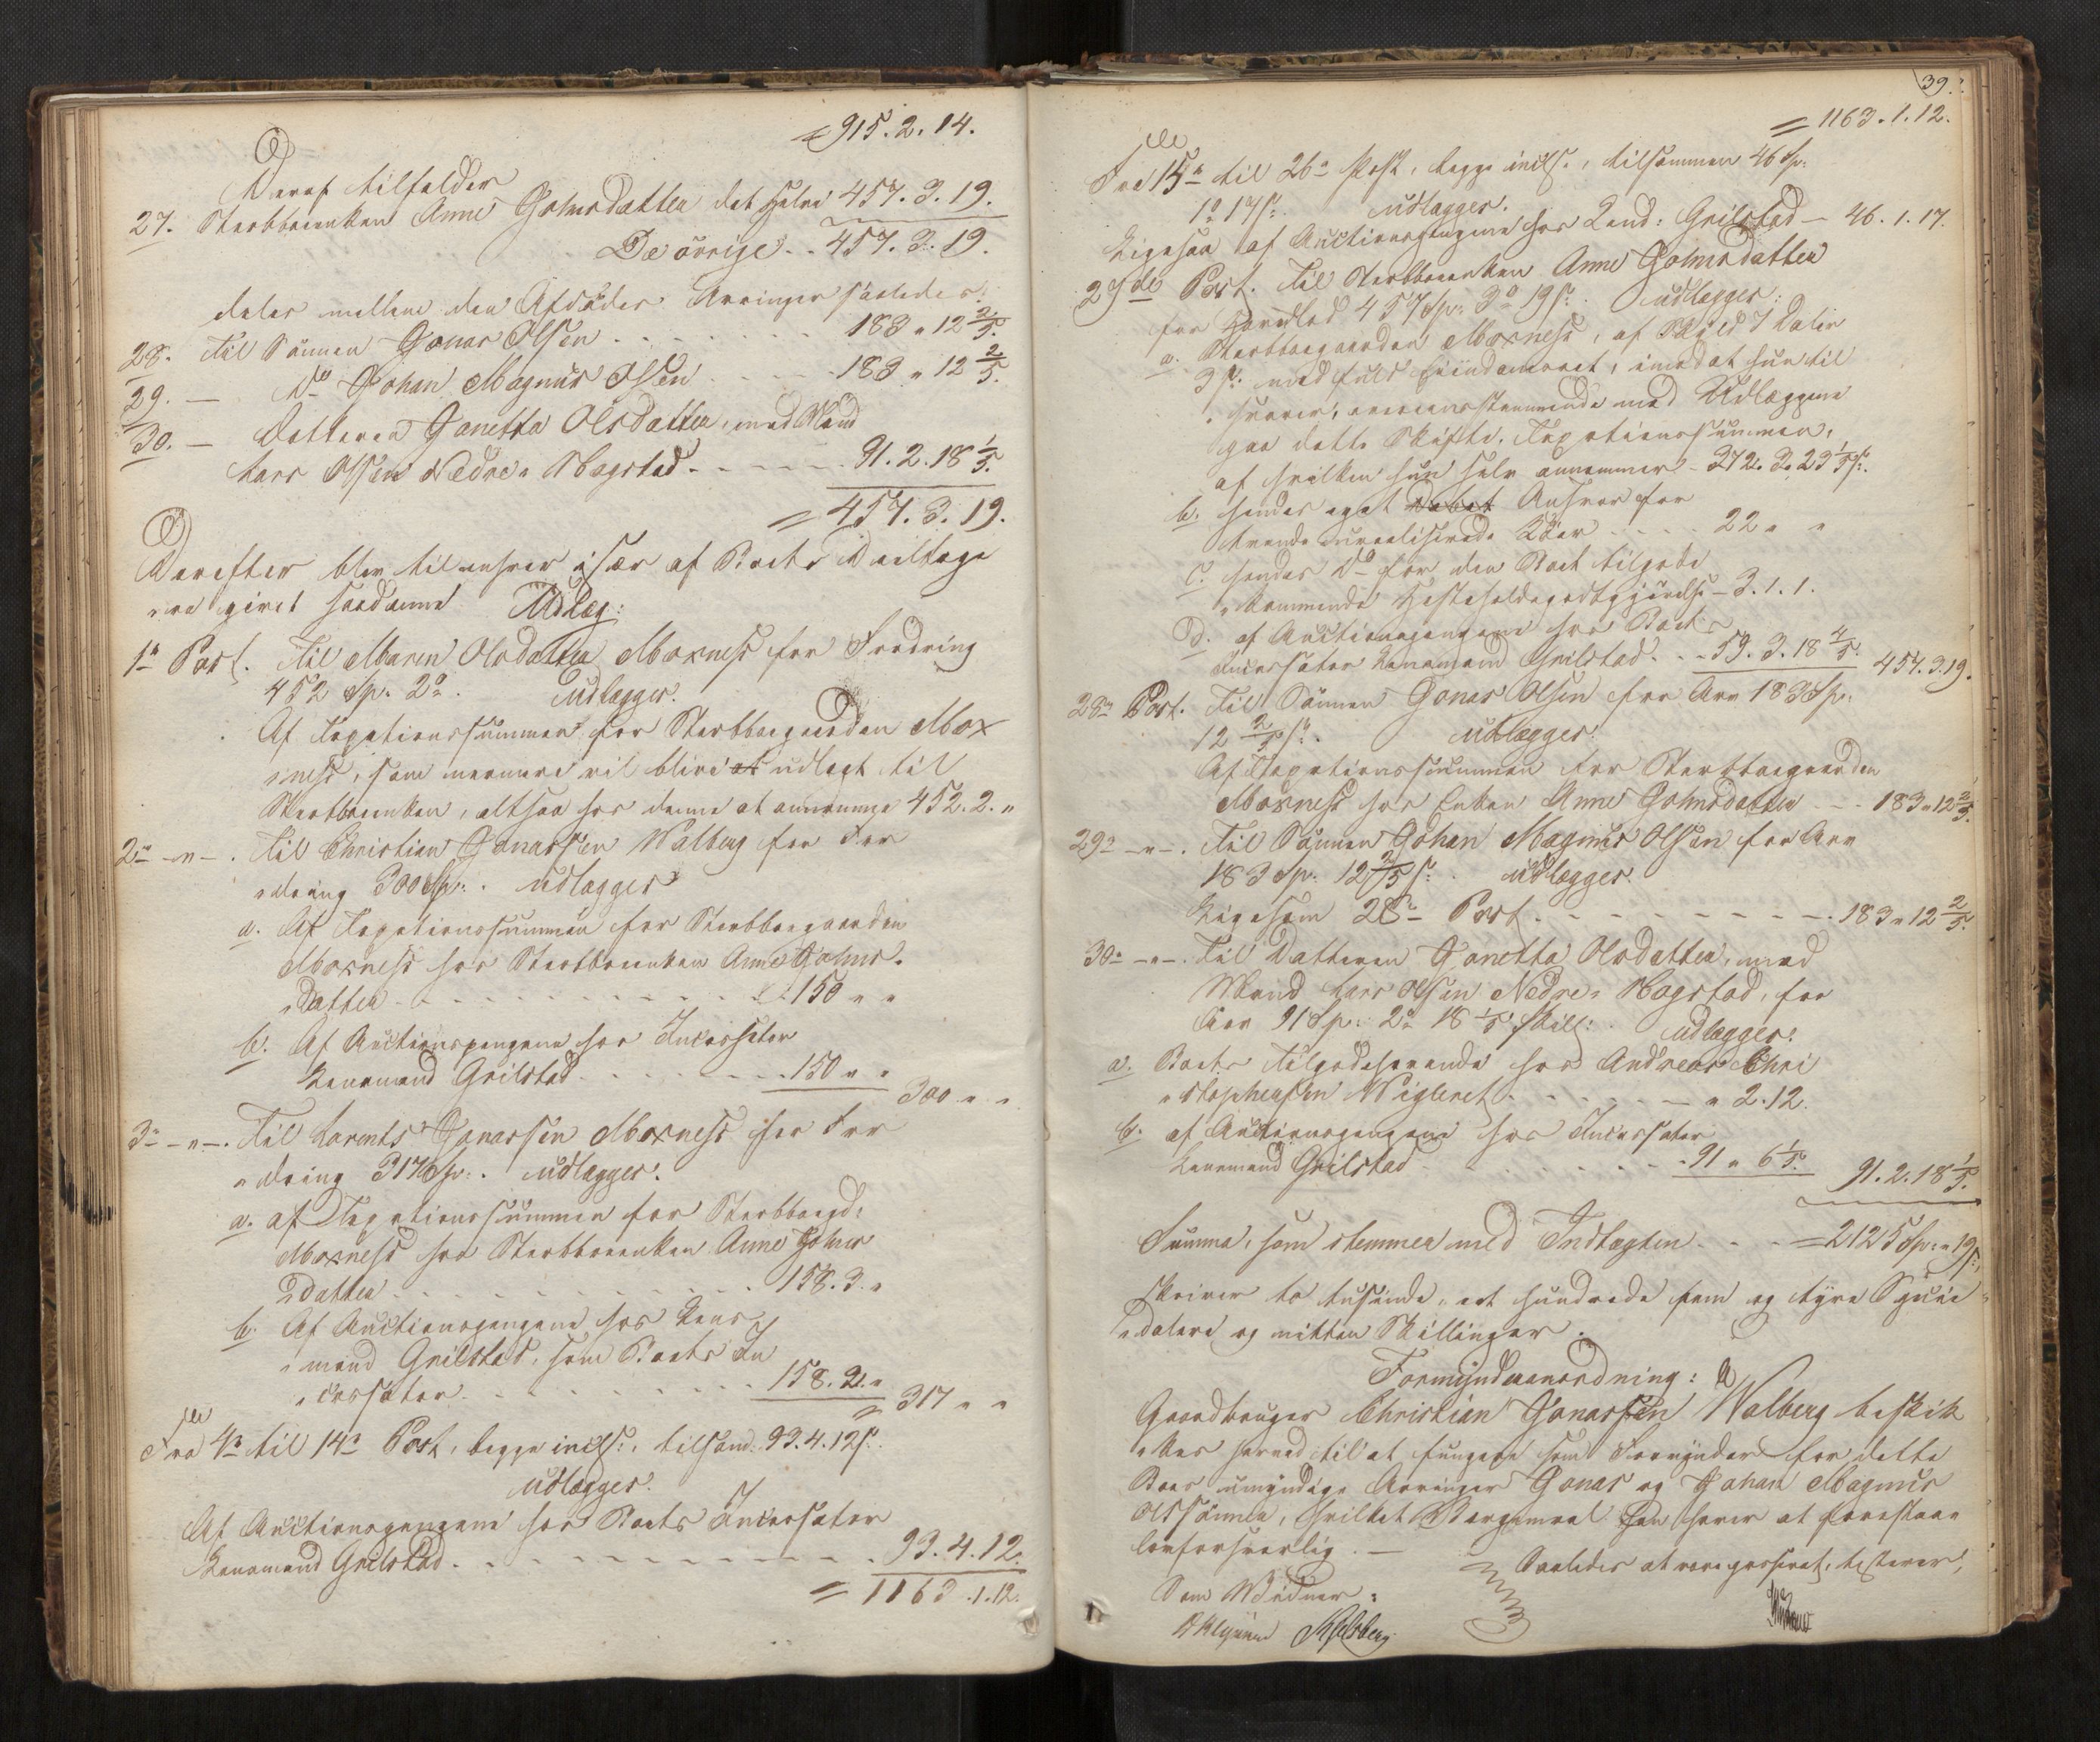 = 915. 2. 14.
Deraf tilfalder
27. Sterbboenken Anne Johnsdatter det halve 457. 3. 19.
De övrige . . 457. 3. 19.
deles mellem den Afdødes Arvinger saaledes:
28. Til Sönnen Jonas Olsen . . . . 183 " 12 2/5.
29. — Do Johan Magnus Olsen . . . 183 " 12 2/5.
30. — Datteren Janetta Olsdatter, med Mand
Lars Olsen Nedre Magstad . . . . 91. 2. 18 1/5.
= 457. 3. 19.
Derefter blev til enhver især af Boets Deeltage
"re givet saadanne Udlæg:
1ste Post. Til Maren Olsdatter Moxness for Fordring
452 Sp. 2 o. udlægges.
Af Taxationssummen for Sterbboegaarden Mox
"ness, som nærmere vil blive at udlagt til
Sterbboenken, altsaa hos denne at annamme 452. 2. "
2den — " — . Til Christian Jonassen Walberg for For
"dring 300 Sp: . udlægges
a. Af Taxationssummen for Sterbboegaarden
Moxness hos Sterbboenken Anne Johns-
"datter . . . . 150 " "
b. Af Auctionspengene hos Incassator
Lensmand Grilstad . . . . 150 " "
300 " "
3die — " — . Til Lorents Jonassen Moxness for For
"dring 317 Sp: . udlægges:
a. af Taxationssummen for Sterbboegd:
Moxness hos Sterbboenken Anne Johns
"datter . . . . 158. 3. "
b. Af Auctionspengene hos Lens
"mand Grilstad, som Boets In
"cassator . . . . 158. 2. "
= 317 " "
Fra 4de til 14de Post, begge incl:, tilsam: 93. 4. 12 s.
udlægges.
Af Auctionspengene hos Boets Incassator
Lensmand Grilstad . . . . 93. 4. 12.
= 1163. 1. 12.
39.
= 1163. 1. 12.
Fra 15de til 26de Post, begge incl:, tilsammen 46 Sp:
1 o 17 s: udlægges.
Ligesaa af Auctionspengene hos Lend: Grilstad — 46. 1. 17.
27de Post. Til Sterbboenken Anne Johnsdatter
for Hovedlod 457 Sp: 3 o 19 s: udlægges:
a. Sterbboegaarden Moxness, af Skyld 7 Daler
3 s: med fuld Eiendomsret, imod at hun til
"svarer, overensstemmende med Udlæggene
paa dette Skifte, Taxationssummen,
af hvilken hun selv annammer - 372. 3. 23 1/5 s:
b. hendes eget Debet Ansvar for
tvende urealiserede Köer . . . 22 " "
c. hendes Do for den Boet tilgode
"kommende Hesteholdsgodtgjörelse - 3. 1. 1.
D. af Auctionspengene hos Boets
Incassator Lensmand Grilstad . . 59. 3. 18 4/5. 457. 3. 19.
28de Post. Til Sönnen Jonas Olsen for Arv 183 Sp:
12 2/5 s: . udlægges:
Af Taxationssummen for Sterbboegaarden
Moxness hos Enken Anne Johnsdatter . . . 183 " 12 2/5.
29de — " — . Til Sönnen Johan Magnus Olsen for Arv
183 Sp: 12 2/5 s: . udlægges:
Ligesom 28de Post . . . . 183 " 12 2/5.
30de — " — . Til Datteren Janetta Olsdatter, med
Mand Lars Olsen Nedre Magstad, for
Arv 91 Sp: 2 o 18 1/5 skill: . udlægges:
a. Boets Tilgodehavende hos Andreas Chri
"stophersen Wigleret . . . . " 2. 12.
b. af Auctionspengene hos Incassator
Lensmand Grilstad . . . . 91 " 6 1/5. 91. 2. 18 1/5.
Summa, som stemmer med Indtægten . . . = 2125 Sp: " 19 s:,
skriver to tusinde, et hundrede fem og tyve Specie
"dalere og nitten Skillinger.
Formynderanordning:
Gaardbruger Christian Jonassen Walberg beskik
"kes herved til at fungere som Formynder for dette
Boes umyndige Arvinger Jonas og Johan Magnus
Olssönner, hvilket Værgemaal han haver at forestaae
lovforsvarlig. —
Saaledes at være passeret, testerer,
Som Vidner: